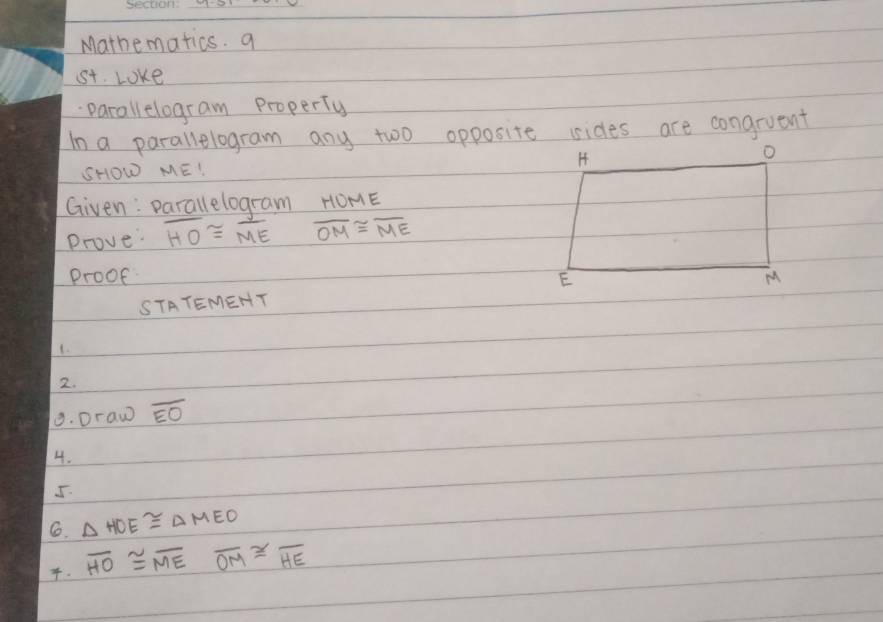 Section:
Mathematics. 9
St. Luke
Parallelogram Property
In a parallelogram any two opposite sides are congruent
SHOW ME!
H O
Given: parallelogram HOME
Prove: HO ≅ ME OM ≅ ME
Proof.
E M
STATEMENT
1.
2.
3. Draw EO
4.
5.
6. △ HOE ≅ △ MEO
7. HO ≅ ME OM ≅ HE